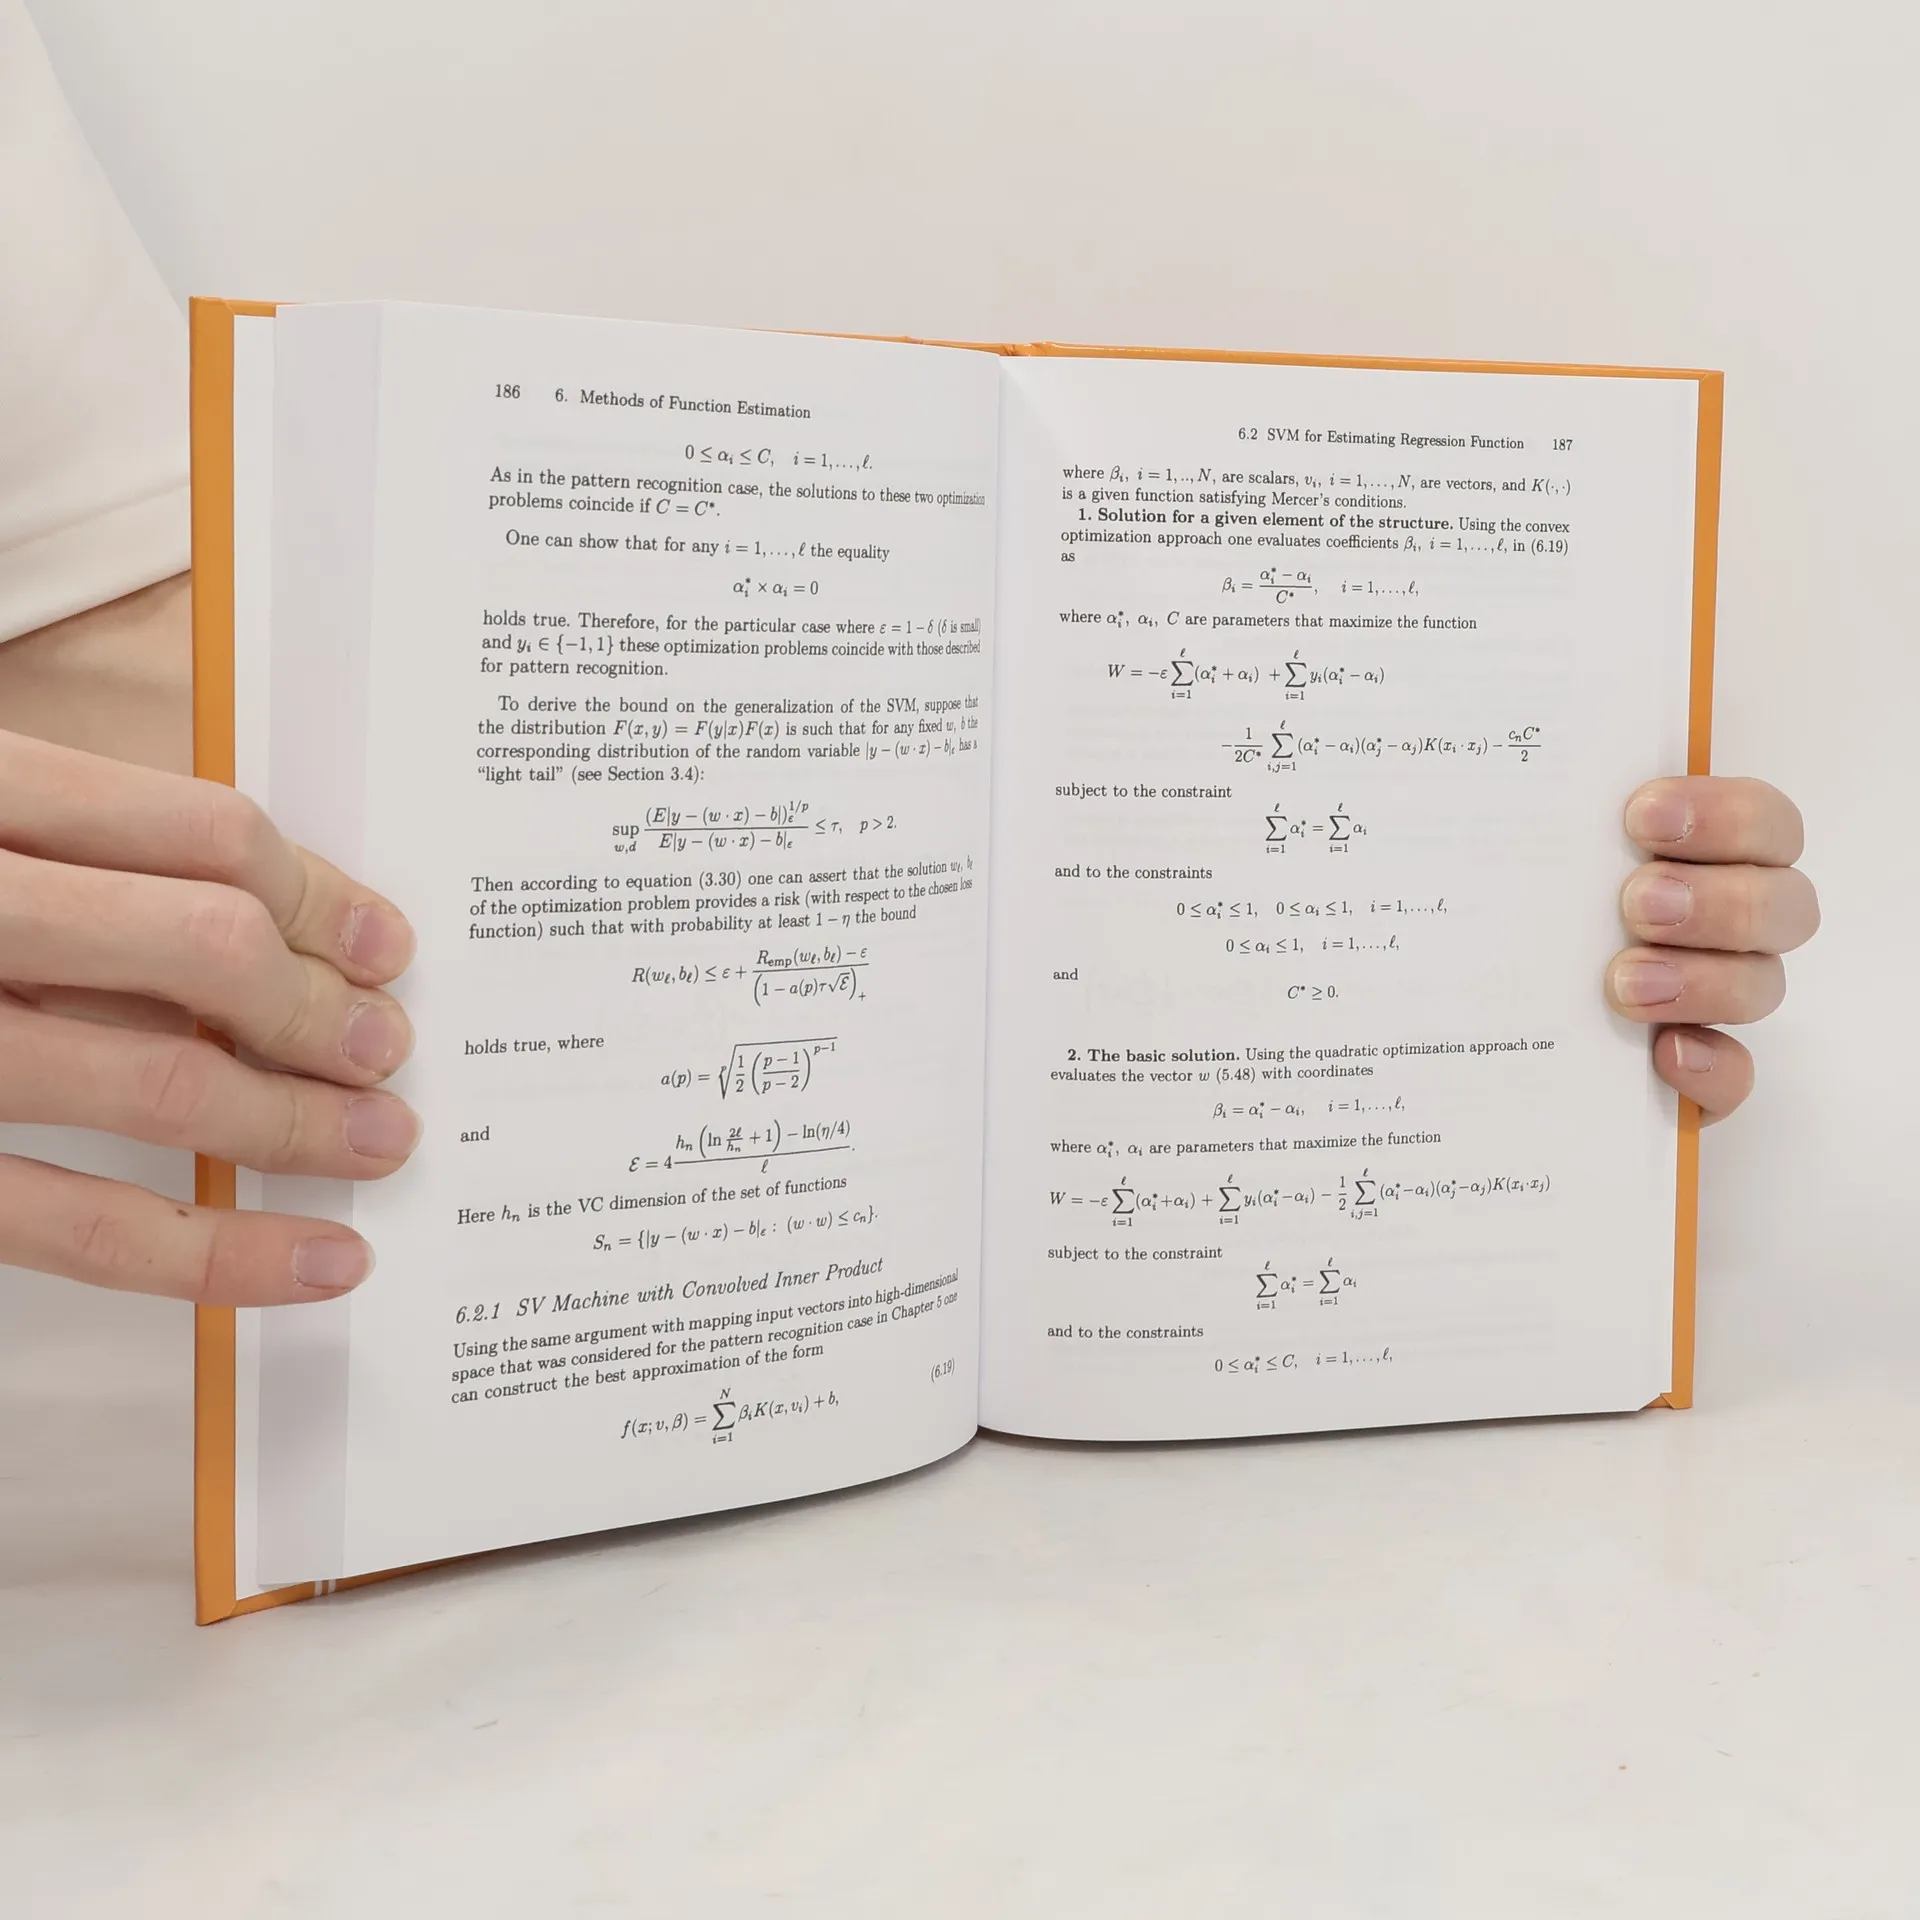 186 6. Methods of Function Estimation
0 ≤ αᵢ ≤ C, i = 1, . . . , ℓ.
As in the pattern recognition case, the solutions to these two optimization
problems coincide if C = C*.
One can show that for any i = 1, . . . , ℓ the equality
αᵢ* × αᵢ = 0
holds true. Therefore, for the particular case where ε = 1 − δ (δ is small)
and yᵢ ∈ {−1, 1} these optimization problems coincide with those described
for pattern recognition.
To derive the bound on the generalization of the SVM, suppose that
the distribution F(x, y) = F(y|x)F(x) is such that for any fixed w, b the
corresponding distribution of the random variable |y − (w · x) − b|_ε has a
“light tail” (see Section 3.4):
sup_{w,d} (E|y − (w · x) − b|)_ε^{1/p} / E|y − (w · x) − b|_ε ≤ τ, p > 2.
Then according to equation (3.30) one can assert that the solution w_ℓ, b_ℓ
of the optimization problem provides a risk (with respect to the chosen loss
function) such that with probability at least 1 − η the bound
R(w_ℓ, b_ℓ) ≤ ε + (R_emp(w_ℓ, b_ℓ) − ε) / (1 − a(p)τ√ℰ)_+
holds true, where
a(p) = ᵖ√(1/2 ((p − 1)/(p − 2))^{p−1})
and
ℰ = 4 (h_n (ln 2ℓ/h_n + 1) − ln(η/4)) / ℓ.
Here h_n is the VC dimension of the set of functions
S_n = {|y − (w · x) − b|_ε : (w · w) ≤ c_n}.
6.2.1 SV Machine with Convolved Inner Product
Using the same argument with mapping input vectors into high-dimensional
space that was considered for the pattern recognition case in Chapter 5 one
can construct the best approximation of the form
f(x; v, β) = ∑_{i=1}^{N} βᵢK(x, vᵢ) + b, (6.19)
6.2 SVM for Estimating Regression Function 187
where βᵢ, i = 1, .., N, are scalars, vᵢ, i = 1, . . . , N, are vectors, and K(·, ·)
is a given function satisfying Mercer's conditions.
1. Solution for a given element of the structure. Using the convex
optimization approach one evaluates coefficients βᵢ, i = 1, . . . , ℓ, in (6.19)
as
βᵢ = (αᵢ* − αᵢ) / C*, i = 1, . . . , ℓ,
where αᵢ*, αᵢ, C are parameters that maximize the function
W = −ε ∑_{i=1}^{ℓ} (αᵢ* + αᵢ) + ∑_{i=1}^{ℓ} yᵢ(αᵢ* − αᵢ)
− 1/(2C*) ∑_{i,j=1}^{ℓ} (αᵢ* − αᵢ)(αⱼ* − αⱼ)K(xᵢ · xⱼ) − c_nC*/2
subject to the constraint
∑_{i=1}^{ℓ} αᵢ* = ∑_{i=1}^{ℓ} αᵢ
and to the constraints
0 ≤ αᵢ* ≤ 1, 0 ≤ αᵢ ≤ 1, i = 1, . . . , ℓ,
0 ≤ αᵢ ≤ 1, i = 1, . . . , ℓ,
and
C* ≥ 0.
2. The basic solution. Using the quadratic optimization approach one
evaluates the vector w (5.48) with coordinates
βᵢ = αᵢ* − αᵢ, i = 1, . . . , ℓ,
where αᵢ*, αᵢ are parameters that maximize the function
W = −ε ∑_{i=1}^{ℓ} (αᵢ* + αᵢ) + ∑_{i=1}^{ℓ} yᵢ(αᵢ* − αᵢ) − 1/2 ∑_{i,j=1}^{ℓ} (αᵢ* − αᵢ)(αⱼ* − αⱼ)K(xᵢ · xⱼ)
subject to the constraint
∑_{i=1}^{ℓ} αᵢ* = ∑_{i=1}^{ℓ} αᵢ
and to the constraints
0 ≤ αᵢ* ≤ C, i = 1, . . . , ℓ,